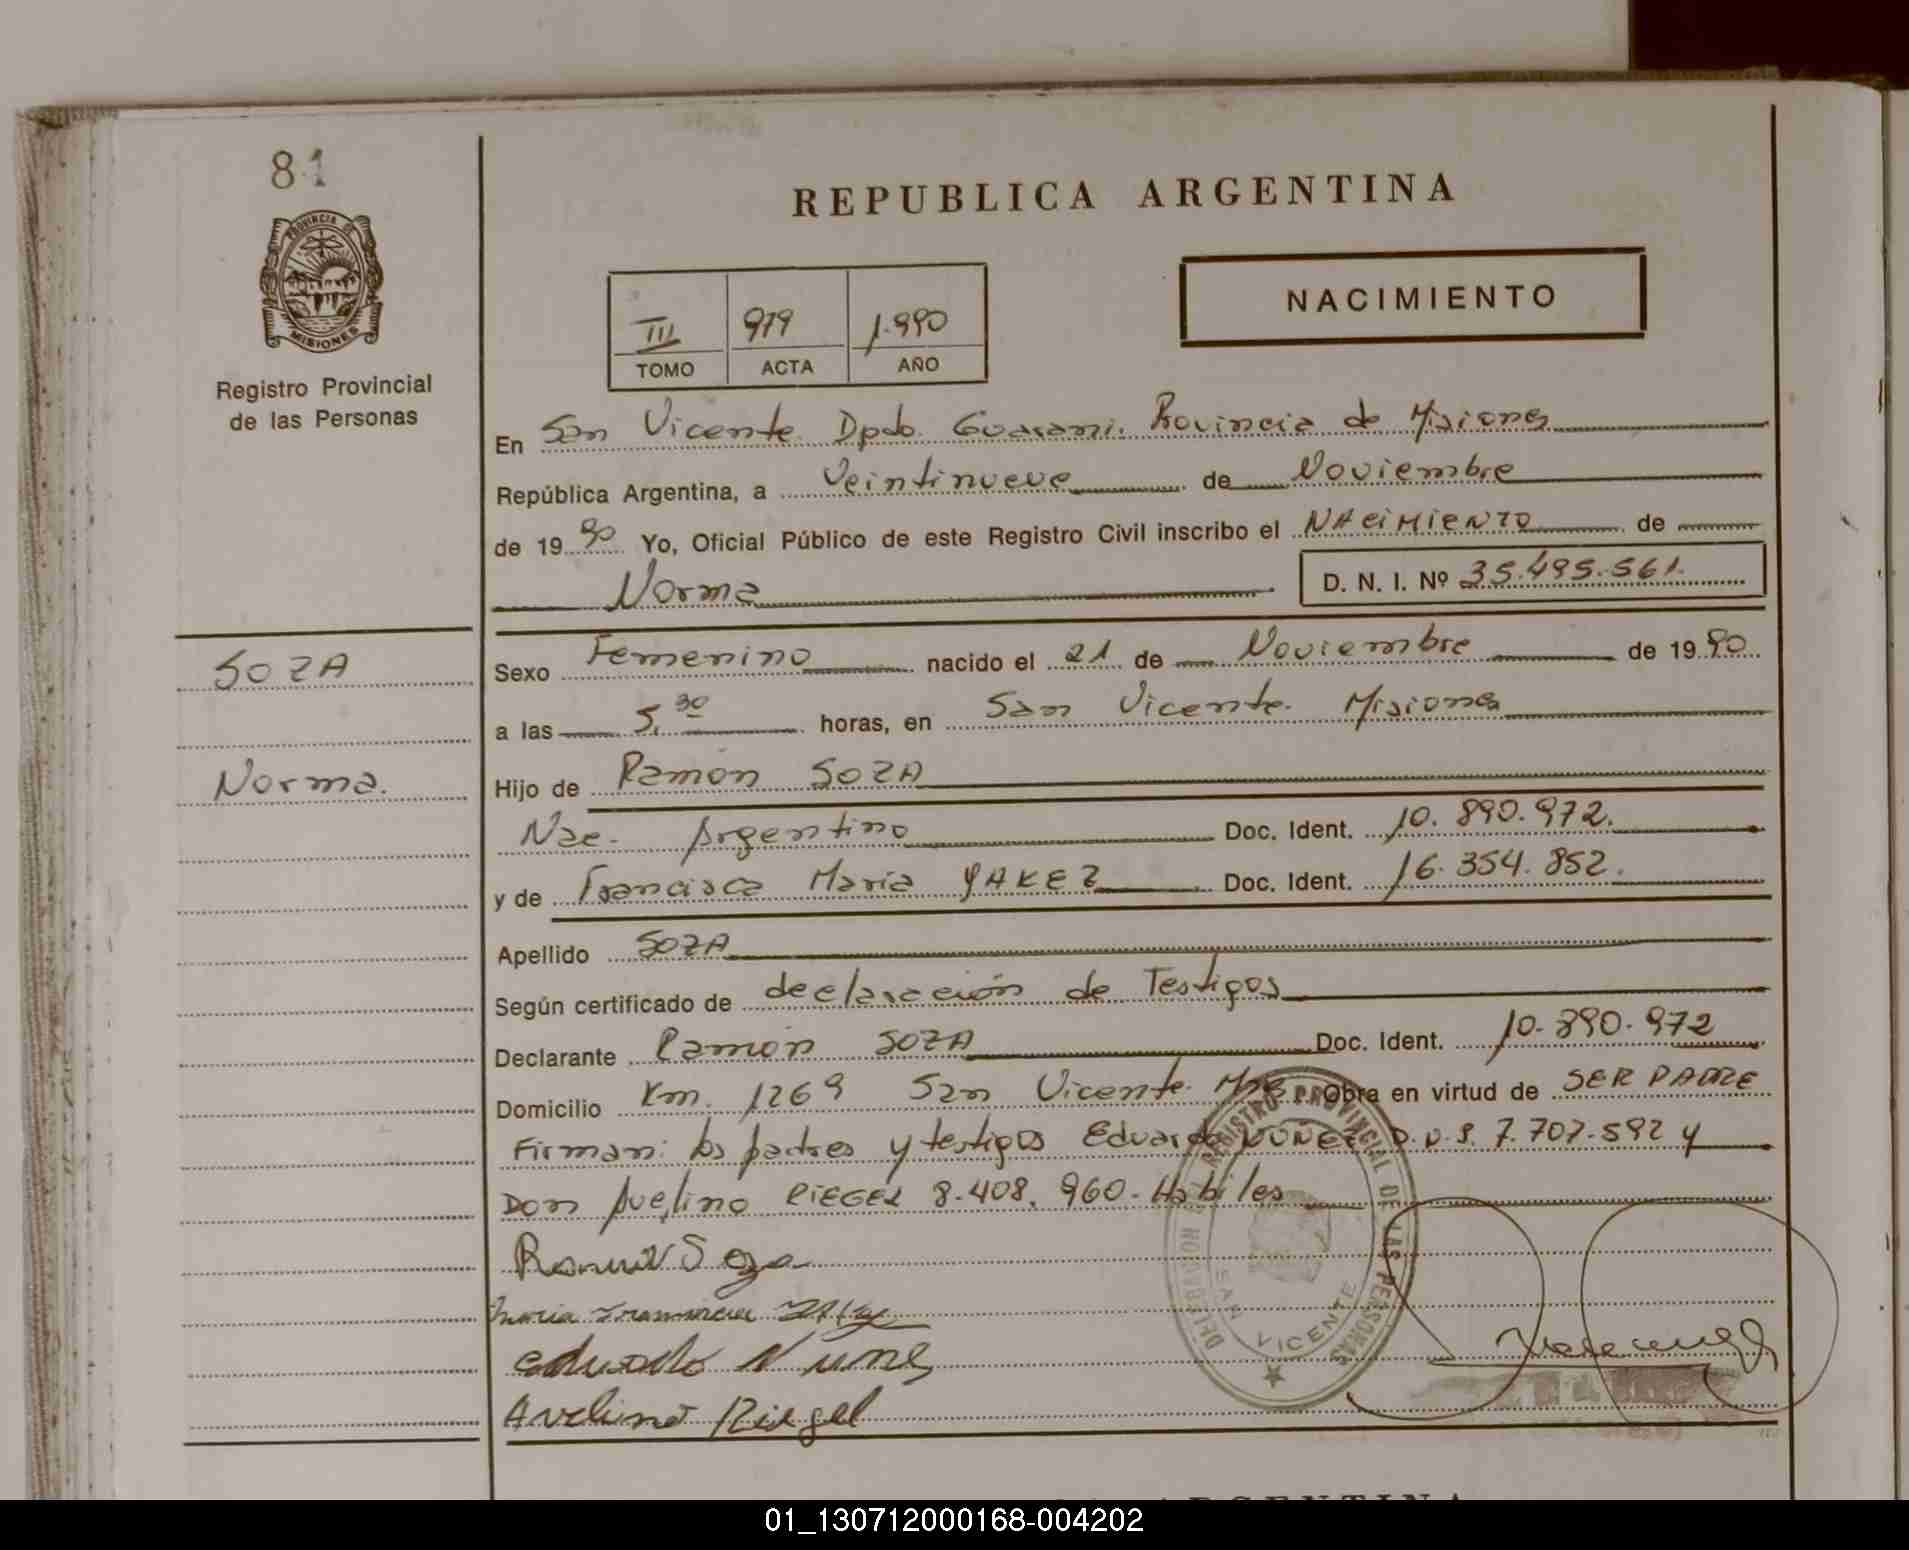 81
PROVINCIA DE
MISIONES
Registro Provincial
de las Personas
REPUBLICA ARGENTINA
NACIMIENTO
III 979 1.990
TOMO ACTA AÑO
En San Vicente Dpdo. Guarani. Provincia de Misiones
República Argentina, a Veintinueve de Noviembre
de 1990 Yo, Oficial Público de este Registro Civil inscribo el NACIMIENTO de
Norma D. N. I. Nº 35.495.561.
SOZA
Norma.
Sexo Femenino nacido el 21 de Noviembre de 1990
a las 5,30 horas, en San Vicente. Misiones
Hijo de Ramón SOZA
Nac. Argentino Doc. Ident. 10.890.972.
y de Francisca Maria YAKEZ Doc. Ident. 16.354.852.
Apellido SOZA
Según certificado de declaración de Testigos
Declarante Ramón SOZA Doc. Ident. 10.890.972
Domicilio Km. 1269 San Vicente. Mnes Obra en virtud de SER PADRE
Firman: los padres y testigos Eduardo NUÑEZ D.N.I. 7.707.592 y
Don Avelino RIEGEL 8.408.960. Habiles
Ramon Soza
Maria Francisca
Eduardo Nunes
Avelino Riegel
DELEGACION REGISTRO PROVINCIAL DE LAS PERSONAS
SAN VICENTE
ARGENTINA
01_130712000168-004202